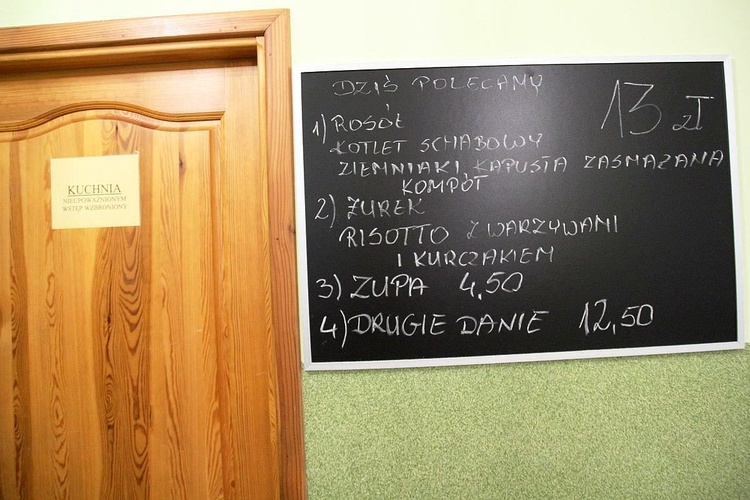 KUCHNIA
NIEUPOWAŻNIONYM
WSTĘP WZBRONIONY
DZIŚ POLECAMY
13 zł
1) ROSÓŁ
KOTLET SCHABOWY
ZIEMNIAKI KAPUSTA ZASMAŻANA
KOMPÓT
2) ŻUREK
RISOTTO Z WARZYWAMI
I KURCZAKIEM
3) ZUPA 4,50
4) DRUGIE DANIE 12,50